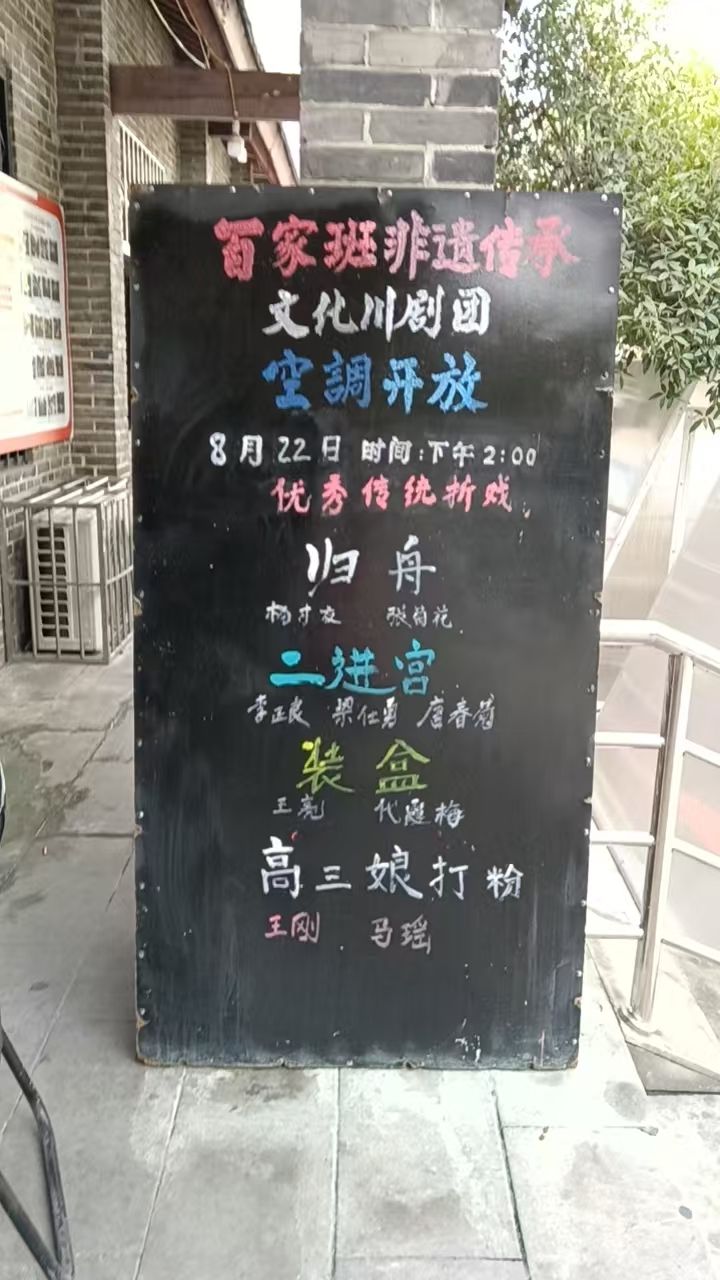 百家班非遗传承
文化川剧团
空調开放
8月22日 时间:下午2:00
优秀传统折戏
归舟
杨才友 张菊花
二进宫
李正良 梁仕勇 唐春菊
装盒
王亮 代 梅
高三娘打粉
王刚 马瑶